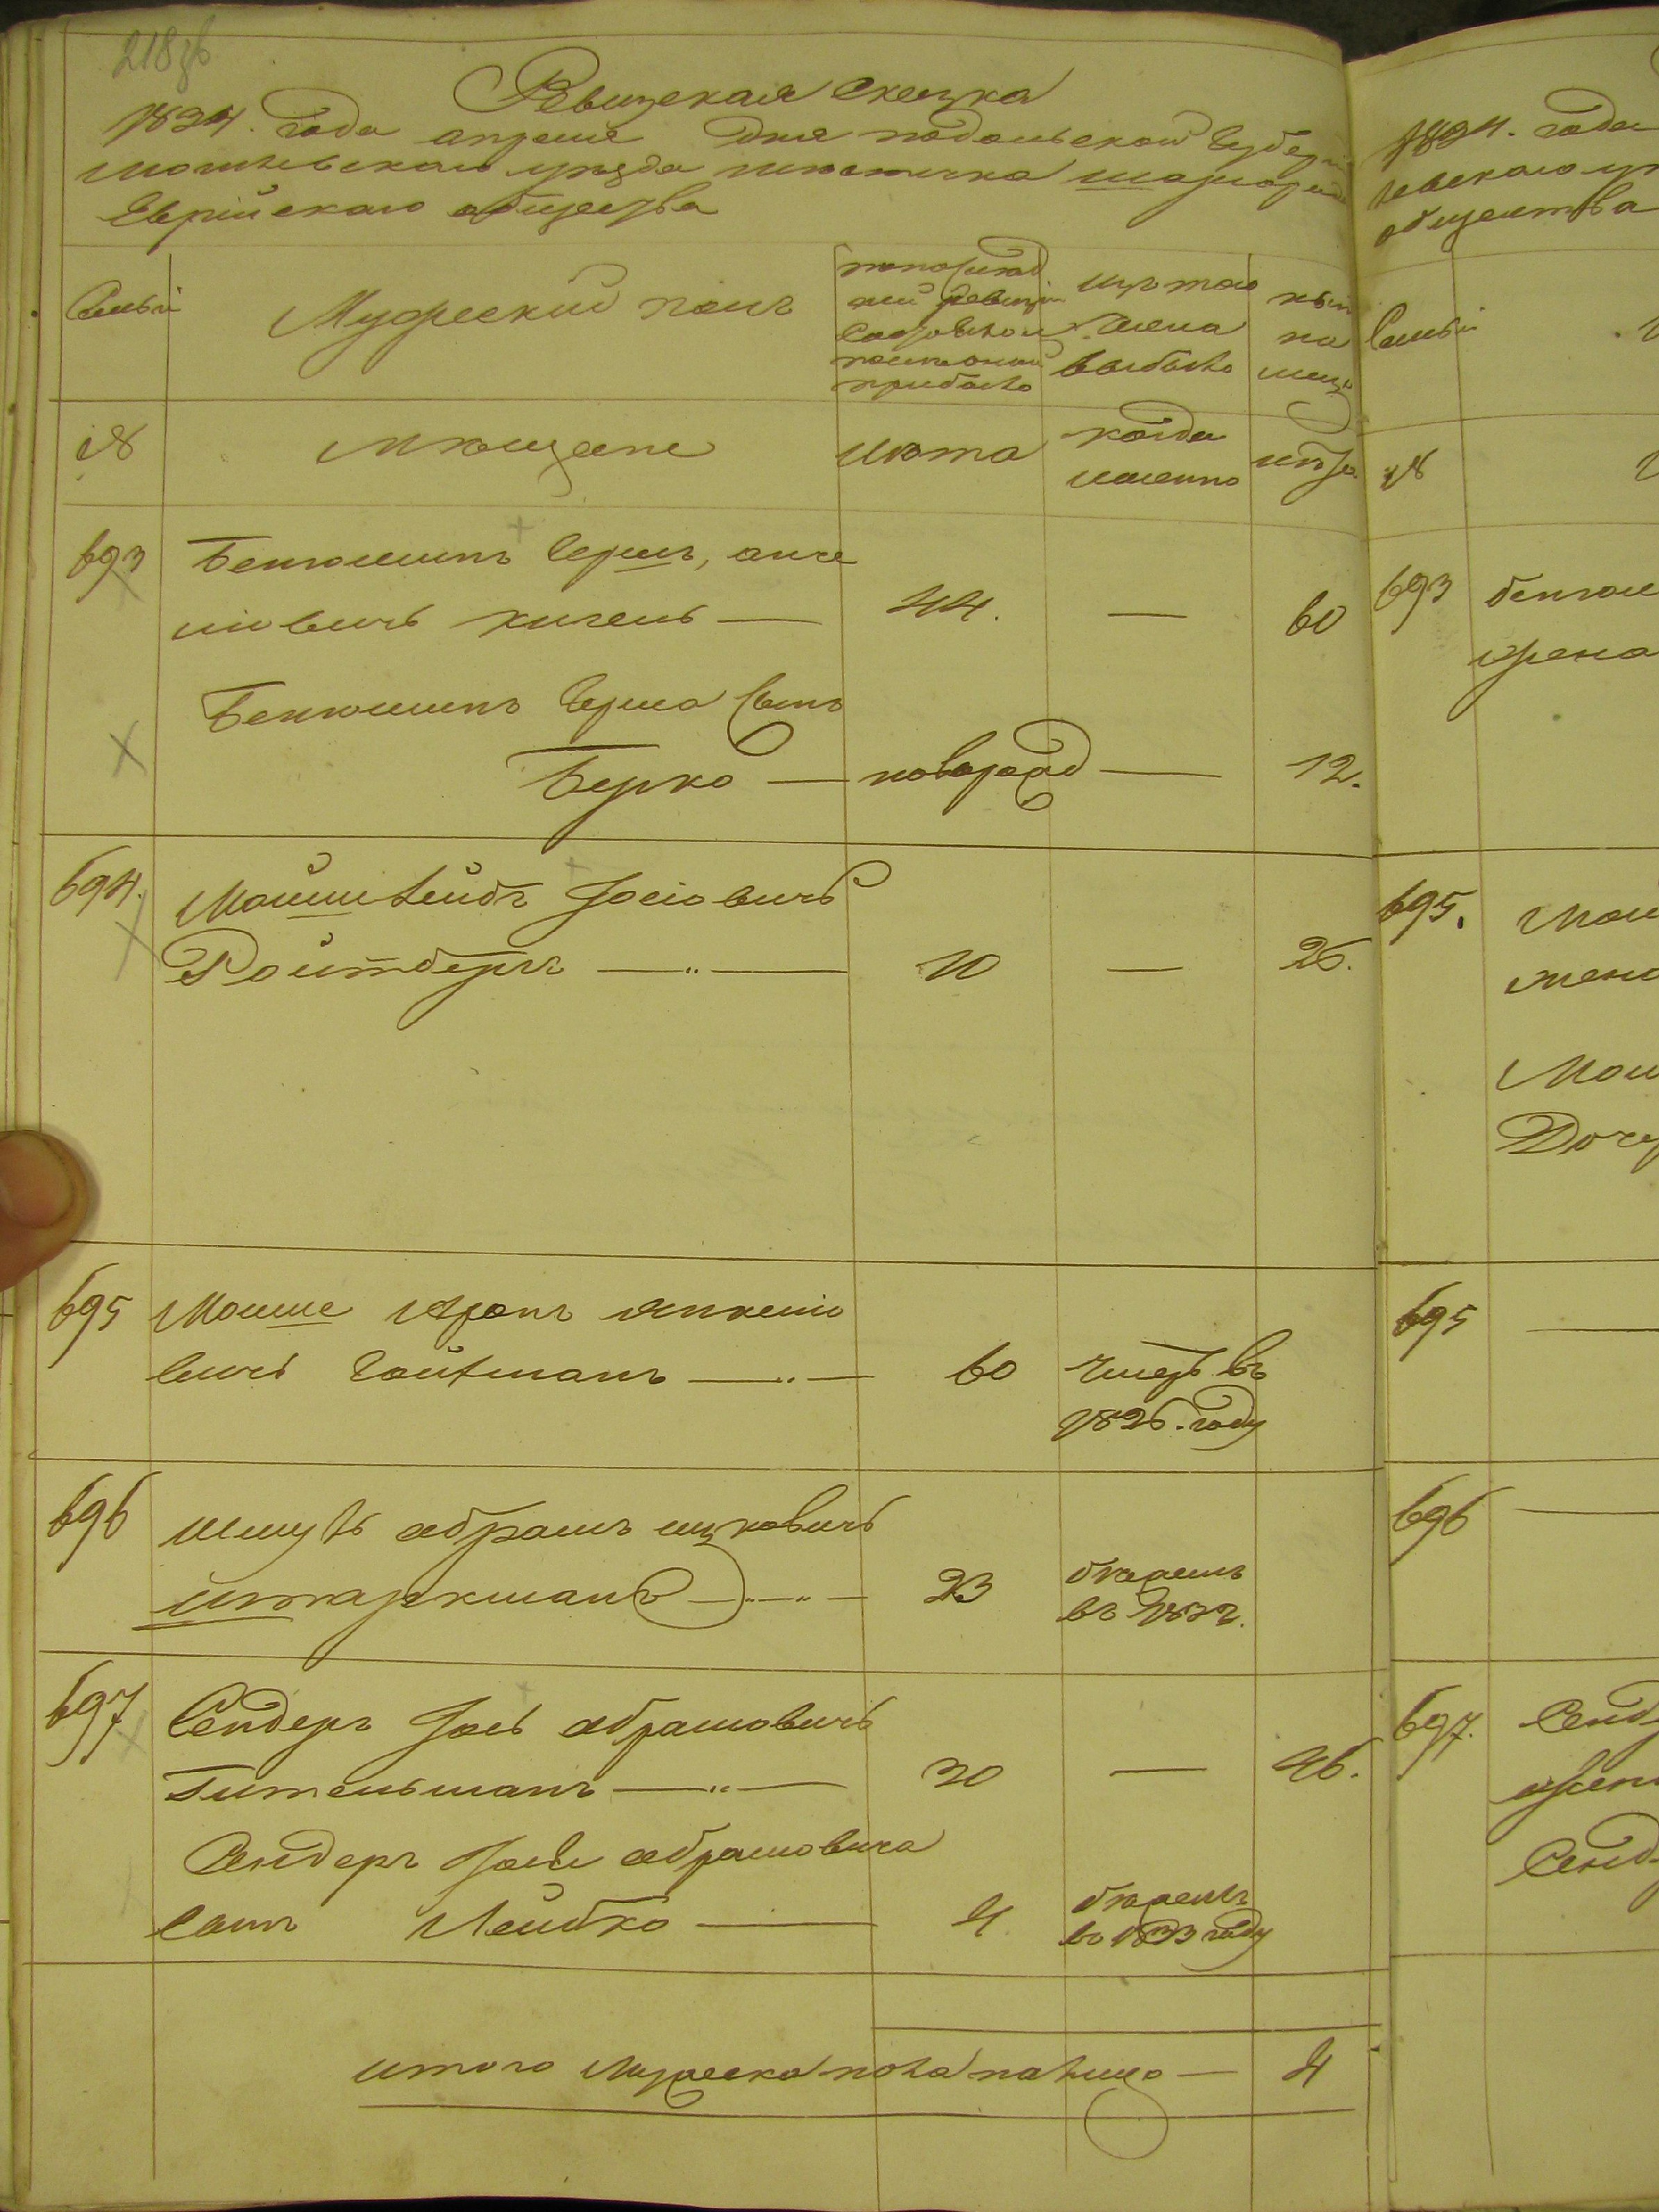 218 об
Ревизская сказка
1834. года апреля дня подольской Губер
могилевскаго уезда местечка шаргорода
Еврейскаго общества
Семьи
Мужеский полъ
по последней ревизіи состояло и после оной прибыло
изъ того числа выбыло
ныне на лицо
№
Мещане
лета
когда именно
лета
693
Беньюминъ Герш, анче
ліовичъ кигель — 44. — 60
Беньюминъ Герша сынъ
Берко — новорожд — 12.
694.
Мошко Лейбъ Іосіовичъ
Ройтбергъ — 10 — 26.
695
Мошко Аронъ Янкеліо
вичъ Гойхманъ — 60 умеръ въ
1826. году
696
Шмуль абрамъ ицковичъ
штаркманъ — 23 отданъ
въ
697
Сендеръ Іось абрамовичъ
Гительманъ — 30 — 46.
Сендеръ Іося абрамовича
сынъ Лейбко — 4
въ 1833 году
итого Мужеска пола на лицо — 4
1834. года
левскаго
общества
Семьи
№
693
жена
695.
Мош
жена
Мош
Дочер
695
696
697.
Сенд
жена
Сенд